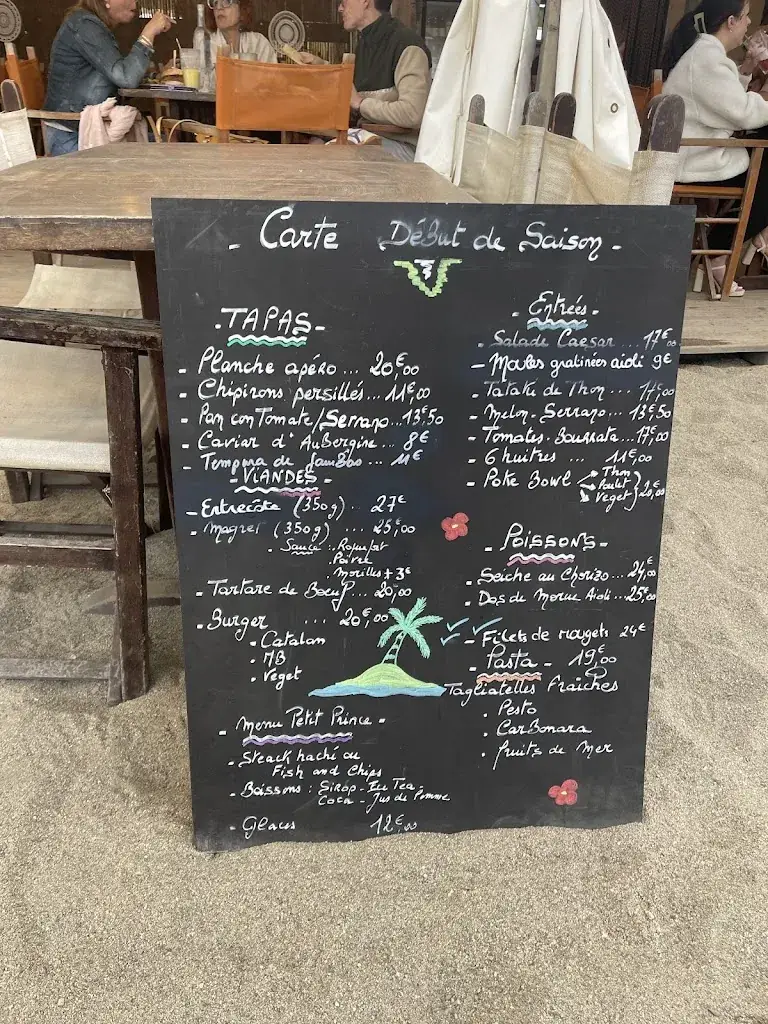 - Carte Début de Saison -
- TAPAS -
- Planche apéro ... 20€00
- Chipirons persillés ... 11€,00
- Pan con Tomate/Serrano ... 13€,50
- Caviar d'AuBergine ... 8€
- Tempura de Gambas ... 11€
- VIANDES -
- Entrecôte (350g) . 27€
- Magret (350g) ... 25€,00
. Sauce : . Roquefort
. Poivre
. Morilles + 3€
- Tartare de Boeuf ... 20,00
- Burger ... 20€,00
. Catalan
. MB
. Veget
- Menu Petit Prince -
- Steack haché ou
Fish and Chips
- Boissons : Sirop - Ice Tea.
Coca - Jus de Pomme
- Glaces 12€,00
- Entrées -
- Salade Caesar ... 17€
- Moules gratinées aioli 9€
- Tataki de Thon ... 17€,00
- Melon - Serrano ... 13€,50
- Tomates - Bourrata ... 17€,00
- 6 huitres ... 11€00
- Poke Bowl Thon
Poulet
Veget } 20,00
- Poissons -
- Seiche au Chorizo ... 24€,00
- Dos de Morue Aioli ... 25€,00
- Filets de rougets 24€
- Pasta - 19€,00
Tagliatelles fraîches
. Pesto
. CarBonara
. fruits de Mer